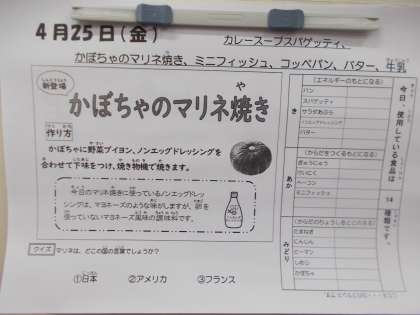 4月25日(金)
カレースープスパゲッティ、
かぼちゃのマリネ焼き、ミニフィッシュ、コッペパン、バター、牛乳
新登場
かぼちゃのマリネ焼き
や
作り方
かぼちゃに野菜ブイヨン、ノンエッグドレッシングを
合わせて下味をつけ、焼き物機で焼きます。
今日のマリネ焼きに使っているノンエッグドレッ
シングは、マヨネーズのような味がしますが、卵を
使っていないマヨネーズ風味の調味料です。
クイズ マリネは、どこの国の言葉でしょうか?
①日本 ②アメリカ ③フランス
き
(エネルギーのもとになる)
パン
スパゲッティ
サラダあぶら
ノンエッグドレッシング
バター
あか
(からだをつくるもとになる)
ぎゅうにゅう
ぶたにく
ベーコン
ミニフィッシュ
みどり
(からだのちょうしをととのえる)
たまねぎ
にんじん
ピーマン
しめじ
かぼちゃ
今日、使用している食品は
14
種類です。